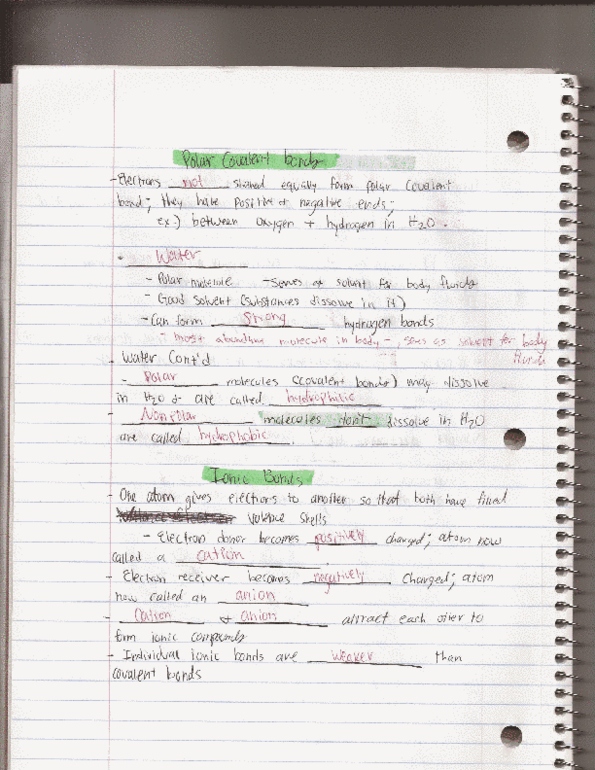 Polar Covalent bonds
- Electrons not shared equally form polar covalent
bond; they have positive & negative ends;
ex.) between oxygen + hydrogen in H2O.
• Water
- Polar molecule - Serves as solvent for body fluids
- Good solvent (substances dissolve in it)
- Can form Strong hydrogen bonds
- most abundant molecule in body - serves as solvent for body
fluids
- Water Cont'd
- Polar molecules (covalent bonds) may dissolve
in H2O & are called hydrophilic
- Nonpolar molecules don't dissolve in H2O
are called hydrophobic.
Ionic Bonds
- One atom gives electrons to another so that both have filled
valence shells
- Electron donor becomes positively charged; atom now
called a cation.
- Electron receiver becomes negatively charged; atom
now called an anion
- Cation & anion attract each other to
form ionic compounds
- Individual ionic bonds are weaker than
covalent bonds